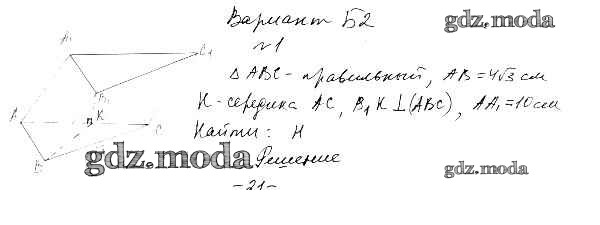 Вариант Б2
gdz.moda
№1
A₁
C₁
Δ ABC - правильный, AB = 4√3 см
B₁
K - середина AC, B₁K ⊥ (ABC), AA₁ = 10 см
A
K
C
Найти: H
B
gdz.moda
Решение
gdz.moda
- 21 -